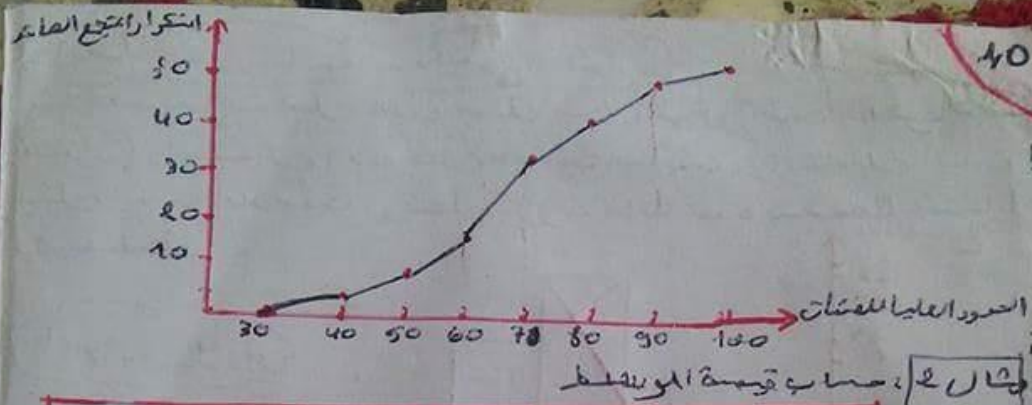 التكرار المتجمع الصاعد
40
50
40
30
20
10
30 40 50 60 70 80 90 100
الحدود العليا للفئات
مثال 2: حساب قيمة الوسيط